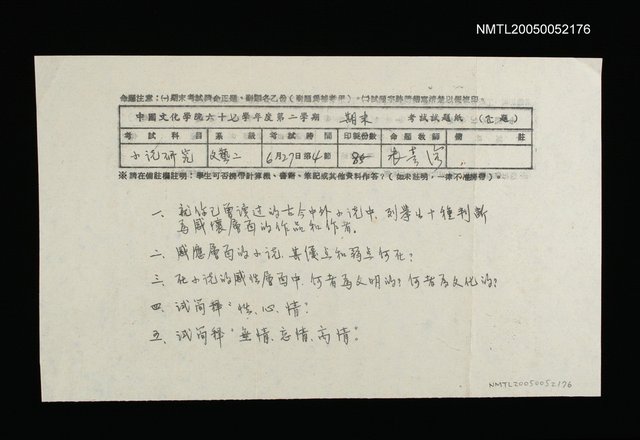 NMTL20050052176
命題注意：㈠期末考試請命正題、副題各乙份（副題為補考用）㈡試題字跡請繕寫清楚以便複印
中國文化學院六十七學年度第二學期 期末 考試試題紙 （正題）
考試科目 系級 考試時間 印製份數 命題教師 備註
小说研究 文藝二 6月27日第4節 80
※請在備註欄註明：學生可否携帶計算機、書籍、筆記或其他資料作答？（如未註明，一律不准携帶）
一、就你已曾读过的古今中外小说中，列舉出十種判斷
為感懷層面的作品和作者。
二、感應層面的小说，其優点和弱点何在？
三、在小说的感性層面中，何者為文明的？何者為文化的？
四、试简釋“性、心、情”
五、试简释“無情、忘情、高情”。
NMTL20050052176